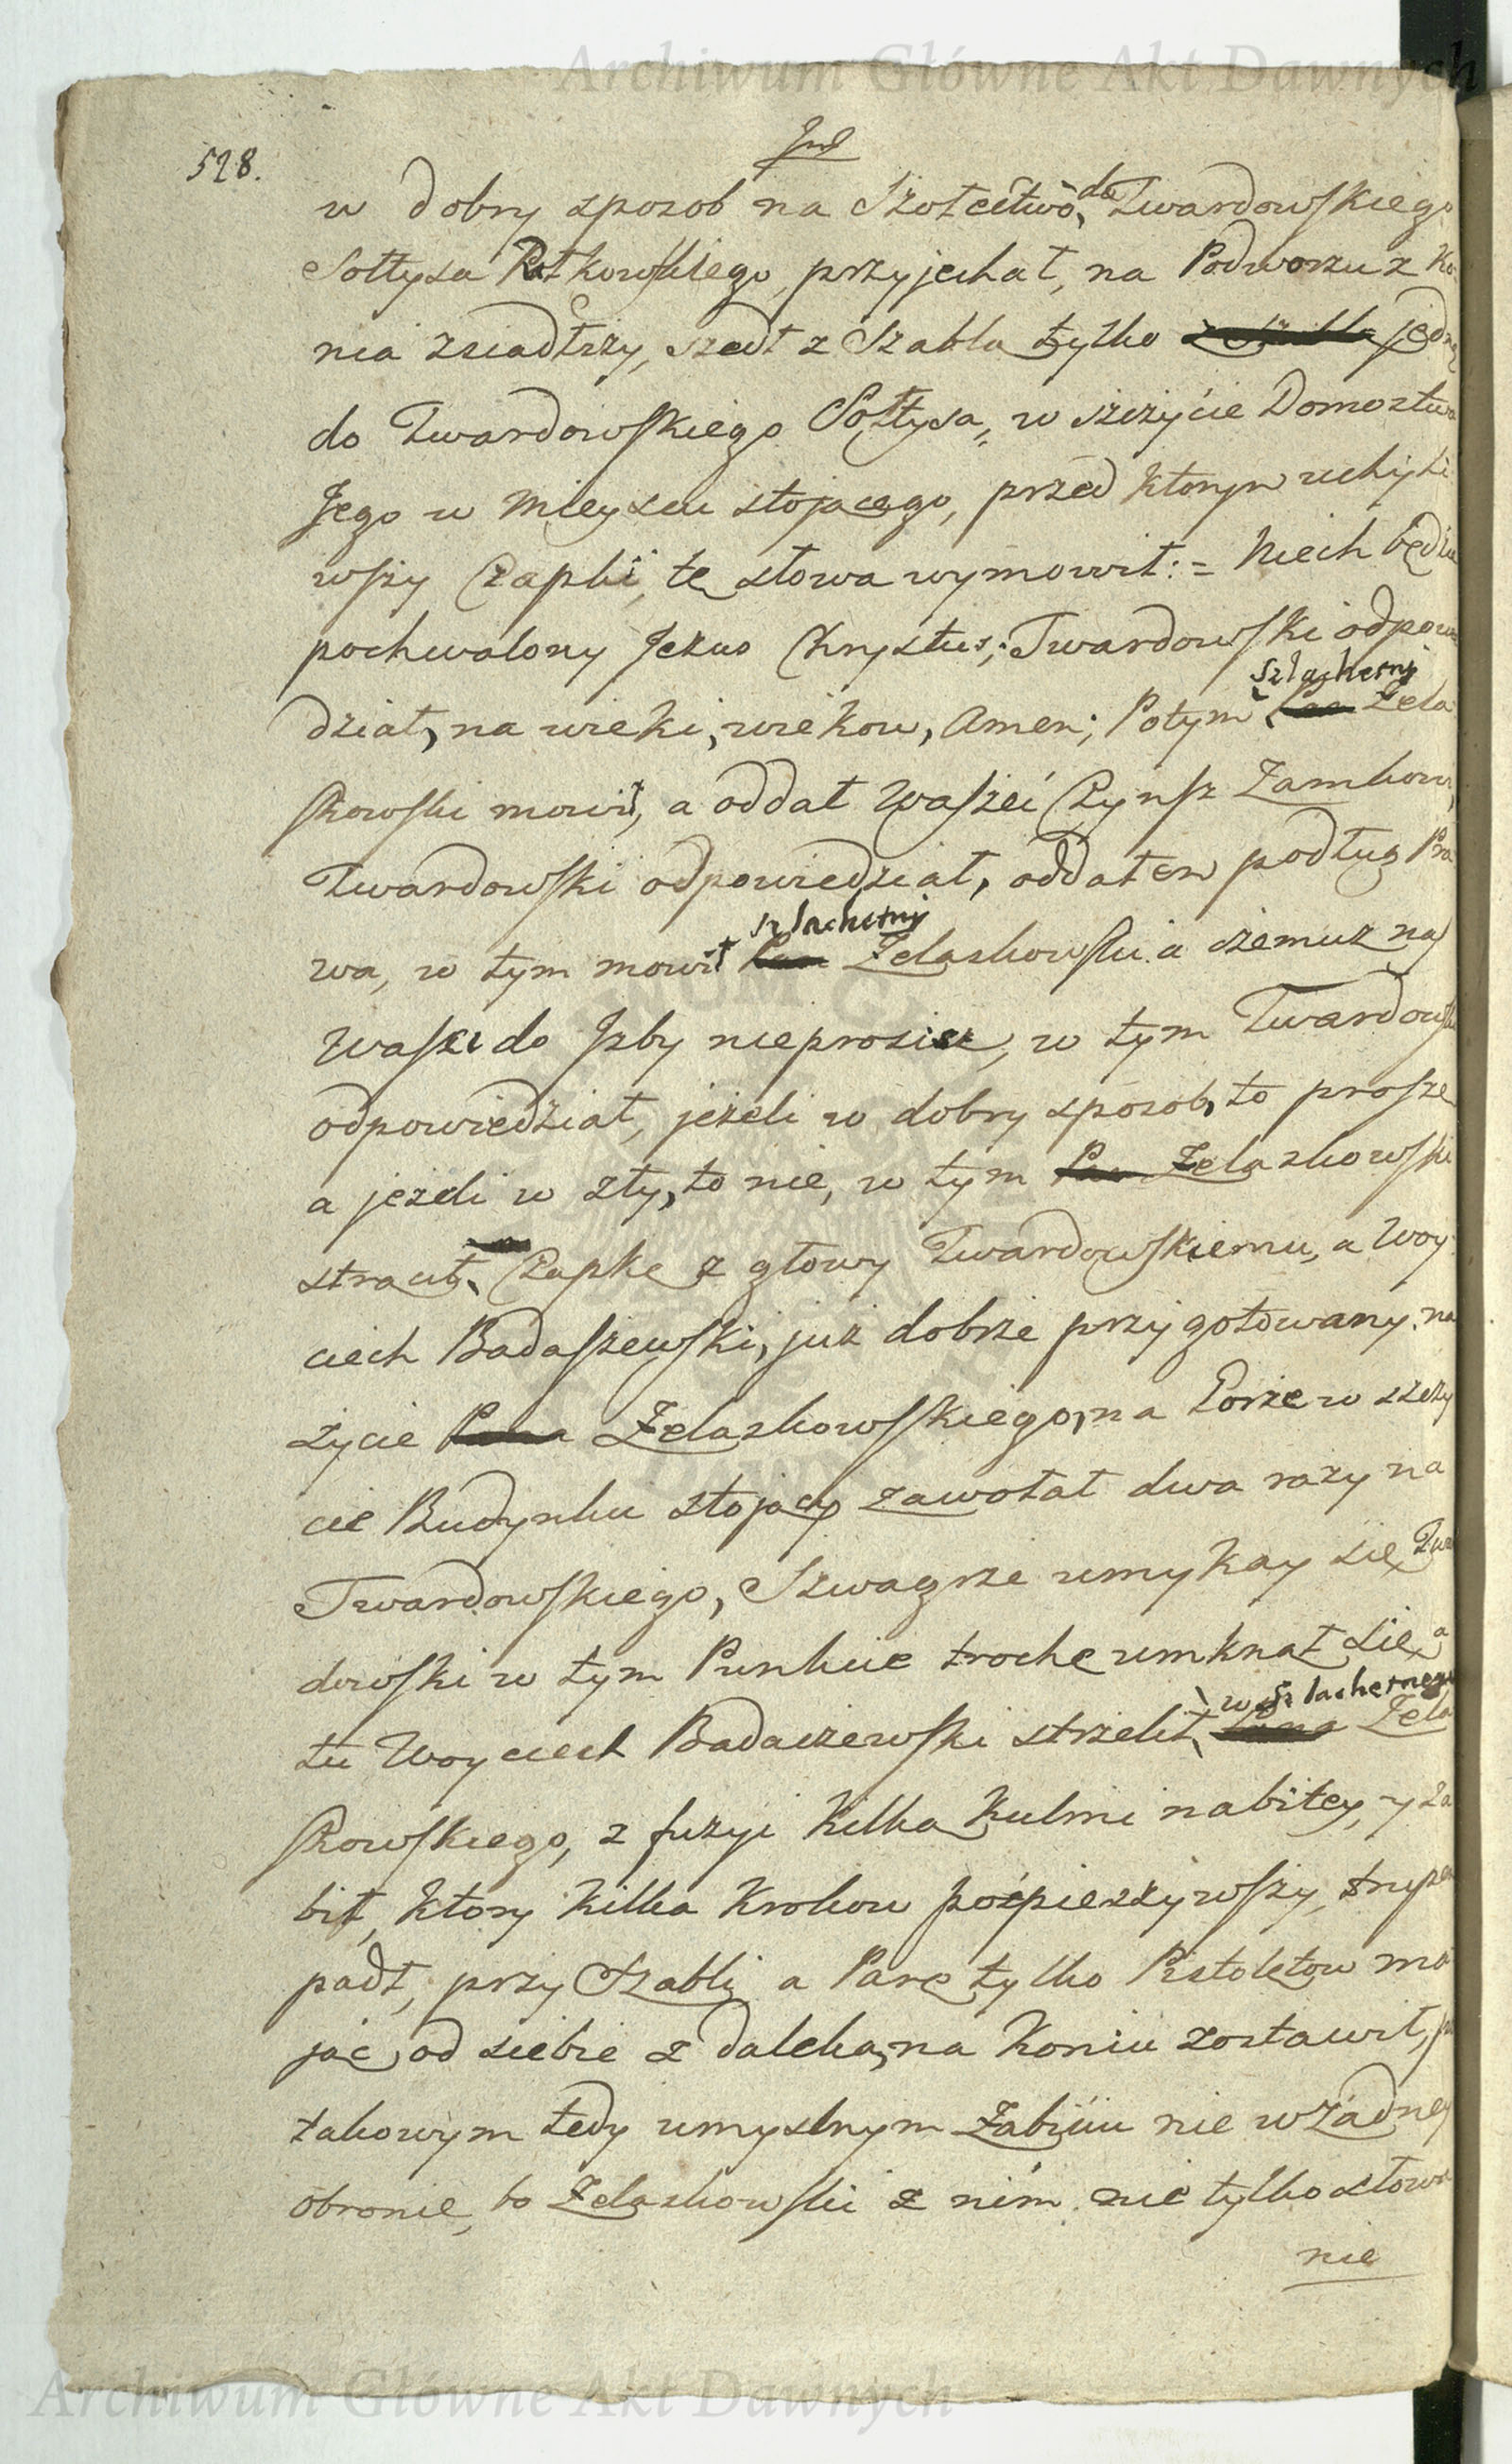 Archiwum Główne Akt Dawnych
528.
w dobry sposob na Szołectwo, do Twardowskiego
Sołtysa Rotkowskiego, przyjechał, na Podworzu z Ko
nia zsiadłszy, szedł z Szablą tylko jedną
do Twardowskiego Sołtysa, w szczycie Domostwa
Jego w mieyscu stojącego, przed ktorym uchyli
wszy Czapki, te słowa wymowił: = Niech będzie
pochwalony Jezus Chrystus; Twardowski odpowie
szlachetny
dział, na wieki, wiekow, Amen; Potym Pan Zela
skowski mowił, a oddał Waszeć Czynsz Zamkowy,
Twardowski odpowiedział, oddałem podług Pra
szlachetny
wa, w tym mowił Pan Zelaskowski a czemuz nas
Waszeć do Izby nieprosisz, w tym Twardowski
odpowiedział, jezeli w dobry sposob, to prosze
a jezeli w zły, to nie, w tym Pan Zelaskowski
strącił Czapkę z głowy Twardowskiemu, a Woy
ciech Badaszewski, juz dobrze przygotowany na
życie Pana Zelaskowskiego, na Gorze w szczy
cie Budynku stojący zawołał dwa razy na
Twardowskiego, Szwagrze umykay się, Twar
dowski w tym Punkcie trochę umknął się, a
w szlachetnego
tu Woyciech Badaszewski strzelił Pana Zela
skowskiego, z fuzyi kilką kulmi nabitey, y za
bił, ktory kilka krokow pośpieszywszy, trupem
padł, przy Szabli a Parę tylko Pistoletow ma
jąc, od siebie z daleka, na Koniu zostawił, po
takowym tedy umyslnym Zabiciu nie w żadney
obronie, bo Zelaskowski z nim nie tylko słowa
nie
Archiwum Główne Akt Dawnych